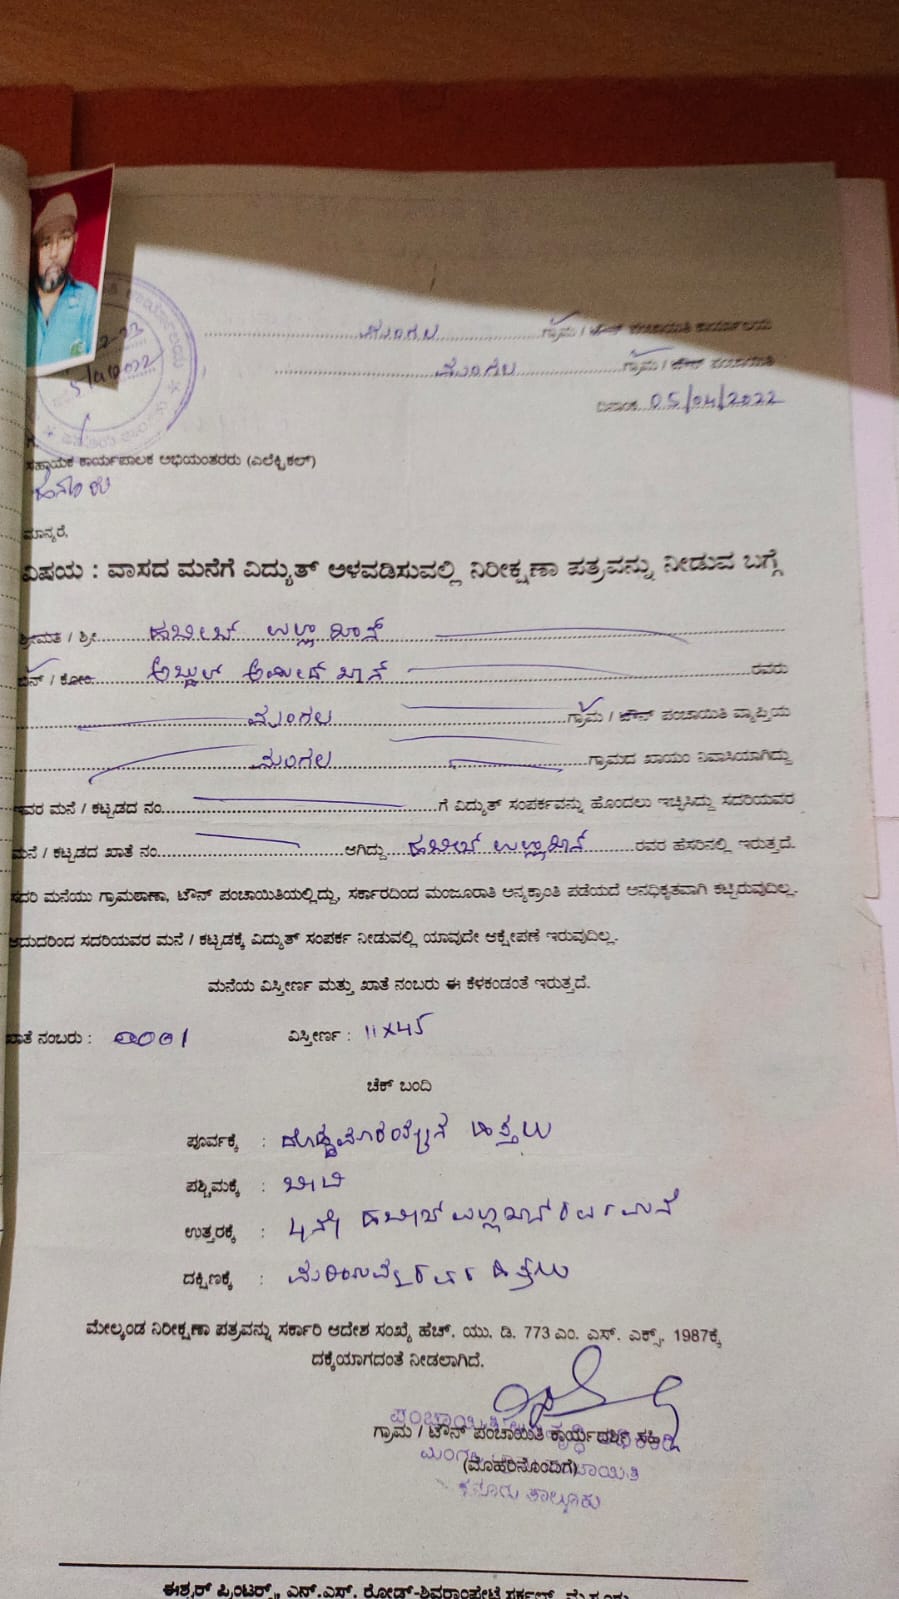 ಮಂಗಲ ಗ್ರಾಮ / ಟೌನ್ ಪಂಚಾಯಿತಿ ಕಾರ್ಯಾಲಯ
ಮಂಗಲ ಗ್ರಾಮ / ಟೌನ್ ಪಂಚಾಯಿತಿ
ದಿನಾಂಕ 05/04/2022
5/4/2022
ಸಹಾಯಕ ಕಾರ್ಯಪಾಲಕ ಅಭಿಯಂತರರು (ಎಲೆಕ್ಟ್ರಿಕಲ್)
ಮಾನ್ಯರೆ,
ವಿಷಯ : ವಾಸದ ಮನೆಗೆ ವಿದ್ಯುತ್ ಅಳವಡಿಸುವಲ್ಲಿ ನಿರೀಕ್ಷಣಾ ಪತ್ರವನ್ನು ನೀಡುವ ಬಗ್ಗೆ
ಶ್ರೀಮತಿ / ಶ್ರೀ ಹಬೀಬ್ ಉಲ್ಲಾ ಖಾನ್
ಬಿನ್ / ಕೋಂ ಅಬ್ದುಲ್ ಅಮೀದ್ ಖಾನ್ ರವರು
ಮಂಗಲ ಗ್ರಾಮ / ಟೌನ್ ಪಂಚಾಯಿತಿ ವ್ಯಾಪ್ತಿಯ
ಮಂಗಲ ಗ್ರಾಮದ ಖಾಯಂ ನಿವಾಸಿಯಾಗಿದ್ದು
ಇವರ ಮನೆ / ಕಟ್ಟಡದ ನಂ. ಗೆ ವಿದ್ಯುತ್ ಸಂಪರ್ಕವನ್ನು ಹೊಂದಲು ಇಚ್ಛಿಸಿದ್ದು ಸದರಿಯವರ
ಮನೆ / ಕಟ್ಟಡದ ಖಾತೆ ನಂ. ಆಗಿದ್ದು ಹಬೀಬ್ ಉಲ್ಲಾಖಾನ್ ರವರ ಹೆಸರಿನಲ್ಲಿ ಇರುತ್ತದೆ.
ಸದರಿ ಮನೆಯು ಗ್ರಾಮಠಾಣಾ, ಟೌನ್ ಪಂಚಾಯಿತಿಯಲ್ಲಿದ್ದು, ಸರ್ಕಾರದಿಂದ ಮಂಜೂರಾತಿ ಅನ್ಯಕ್ರಾಂತಿ ಪಡೆಯದೆ ಅನಧಿಕೃತವಾಗಿ ಕಟ್ಟಿರುವುದಿಲ್ಲ.
ಆದುದರಿಂದ ಸದರಿಯವರ ಮನೆ / ಕಟ್ಟಡಕ್ಕೆ ವಿದ್ಯುತ್ ಸಂಪರ್ಕ ನೀಡುವಲ್ಲಿ ಯಾವುದೇ ಆಕ್ಷೇಪಣೆ ಇರುವುದಿಲ್ಲ.
ಮನೆಯ ವಿಸ್ತೀರ್ಣ ಮತ್ತು ಖಾತೆ ನಂಬರು ಈ ಕೆಳಕಂಡಂತೆ ಇರುತ್ತದೆ.
ಖಾತೆ ನಂಬರು : ವಿಸ್ತೀರ್ಣ : 11x45
ಚೆಕ್ ಬಂದಿ
ಪೂರ್ವಕ್ಕೆ : ಹಿತ್ತಲು
ಪಶ್ಚಿಮಕ್ಕೆ : ಬೀದಿ
ಉತ್ತರಕ್ಕೆ : ಹಬೀಬ್ ಉಲ್ಲಖಾನ್ ರವರ ಮನೆ
ದಕ್ಷಿಣಕ್ಕೆ : ರವರ ಹಿತ್ತಲು
ಮೇಲ್ಕಂಡ ನಿರೀಕ್ಷಣಾ ಪತ್ರವನ್ನು ಸರ್ಕಾರಿ ಆದೇಶ ಸಂಖ್ಯೆ ಹೆಚ್. ಯು. ಡಿ. 773 ಎಂ. ಎಸ್. ಎಕ್ಸ್. 1987ಕ್ಕೆ
ದಕ್ಕೆಯಾಗದಂತೆ ನೀಡಲಾಗಿದೆ.
ಗ್ರಾಮ / ಟೌನ್ ಪಂಚಾಯಿತಿ ಕಾರ್ಯದರ್ಶಿ ಸಹಿ
(ಮೊಹರಿನೊಂದಿಗೆ)
ತಾಲ್ಲೂಕು
ಈಶ್ವರ್ ಪ್ರಿಂಟರ್ಸ್, ಎನ್.ಎಸ್. ರೋಡ್-ಶಿವರಾಂಪೇಟೆ ಸರ್ಕಲ್, ಮೈಸೂರು